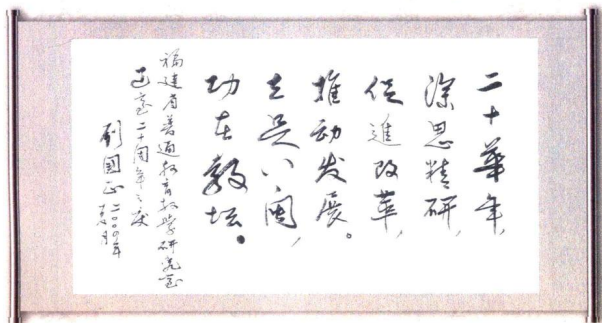 二十華年,
深思精研,
促進改革,
推动发展。
立足八闽,
功在教坛。
福建省普通教育教学研究室
建室二十周年之庆
刘國正 二〇〇〇年
月